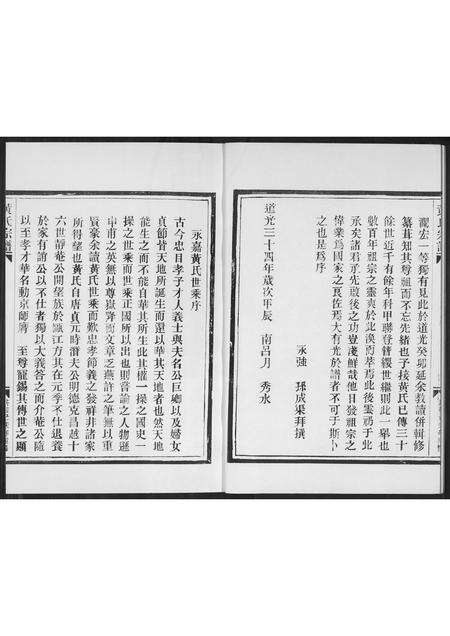 觀宏一等獨有見此於道光癸卯延余敦請併輯修
纂葺知其尊祖而不忘先緒也予按黃氏已傳三十
餘世近千有餘年科甲聯登簪纓世繼則此一舉也
數百年祖宗之靈爽於此渙而萃焉此後雲礽于此
永矣諸君承先啟後之功豈淺鮮哉他日發祥宗之
偉業為國家之良佐焉大有光於譜者不可于斯卜
之也是為序
永強 孫成果拜撰
道光二十四年歲次甲辰 南呂月 秀水
永嘉黃氏世乘序
古今忠臣孝子才人義士與夫名公巨卿以及嫠女
貞節皆天地所誕生而還以華其天地者也然天地
能生之而不能自華其所生此其權一操之國史一
操之世乘而世乘正國所以出也則旨論之人物遞
中甫之英無以尊嶽齊而文章乏燕許之筆無以重
賢豪余讀黃氏世乘而歎忠孝節義之發祥非諸家
所得望也黃氏自唐貞元時潛夫公明德克昌越十
六世靜庵公閥望族於甌江方其在元季不仕退養
於家有詔公以不仕者獨以大義答之而介庵公隨
以至孝才華名動京師薄 至尊寵錫其傳世之顯
黃氏宗譜